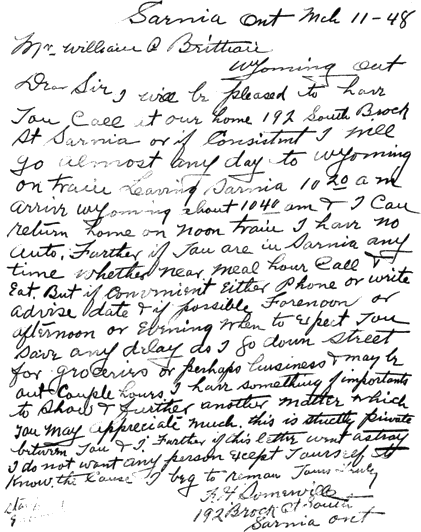 Sarnia Ont Mch 11-48
Mr. William A Brittain
Wyoming Ont
Dear Sir, I will be pleased to have
You Call at our home 192 South Brock
St Sarnia or if Consistent I will
go almost any day to Wyoming
on train Leaving Sarnia 10 20 a m
arrive Wyoming about 10 40 am & I Can
return home on noon train I have no
auto. Further if You are in Sarnia any
time whether near meal hour Call &
Eat. But if Convenient Either Phone or write
advise date & if possible Forenoon or
afternoon or Evening When to Expect You
save any delay as I go down street
for groceries or perhaps business & may be
out Couple hours I have something of importants
to Show & further another matter which
You may appreciate much. this is strictly private
between You & I. Further if this letter went astray
I do not want any person Except Yourself to
Know the Cause I beg to remain Yours Truly
Somerville
192 Brock St South
Sarnia Ont